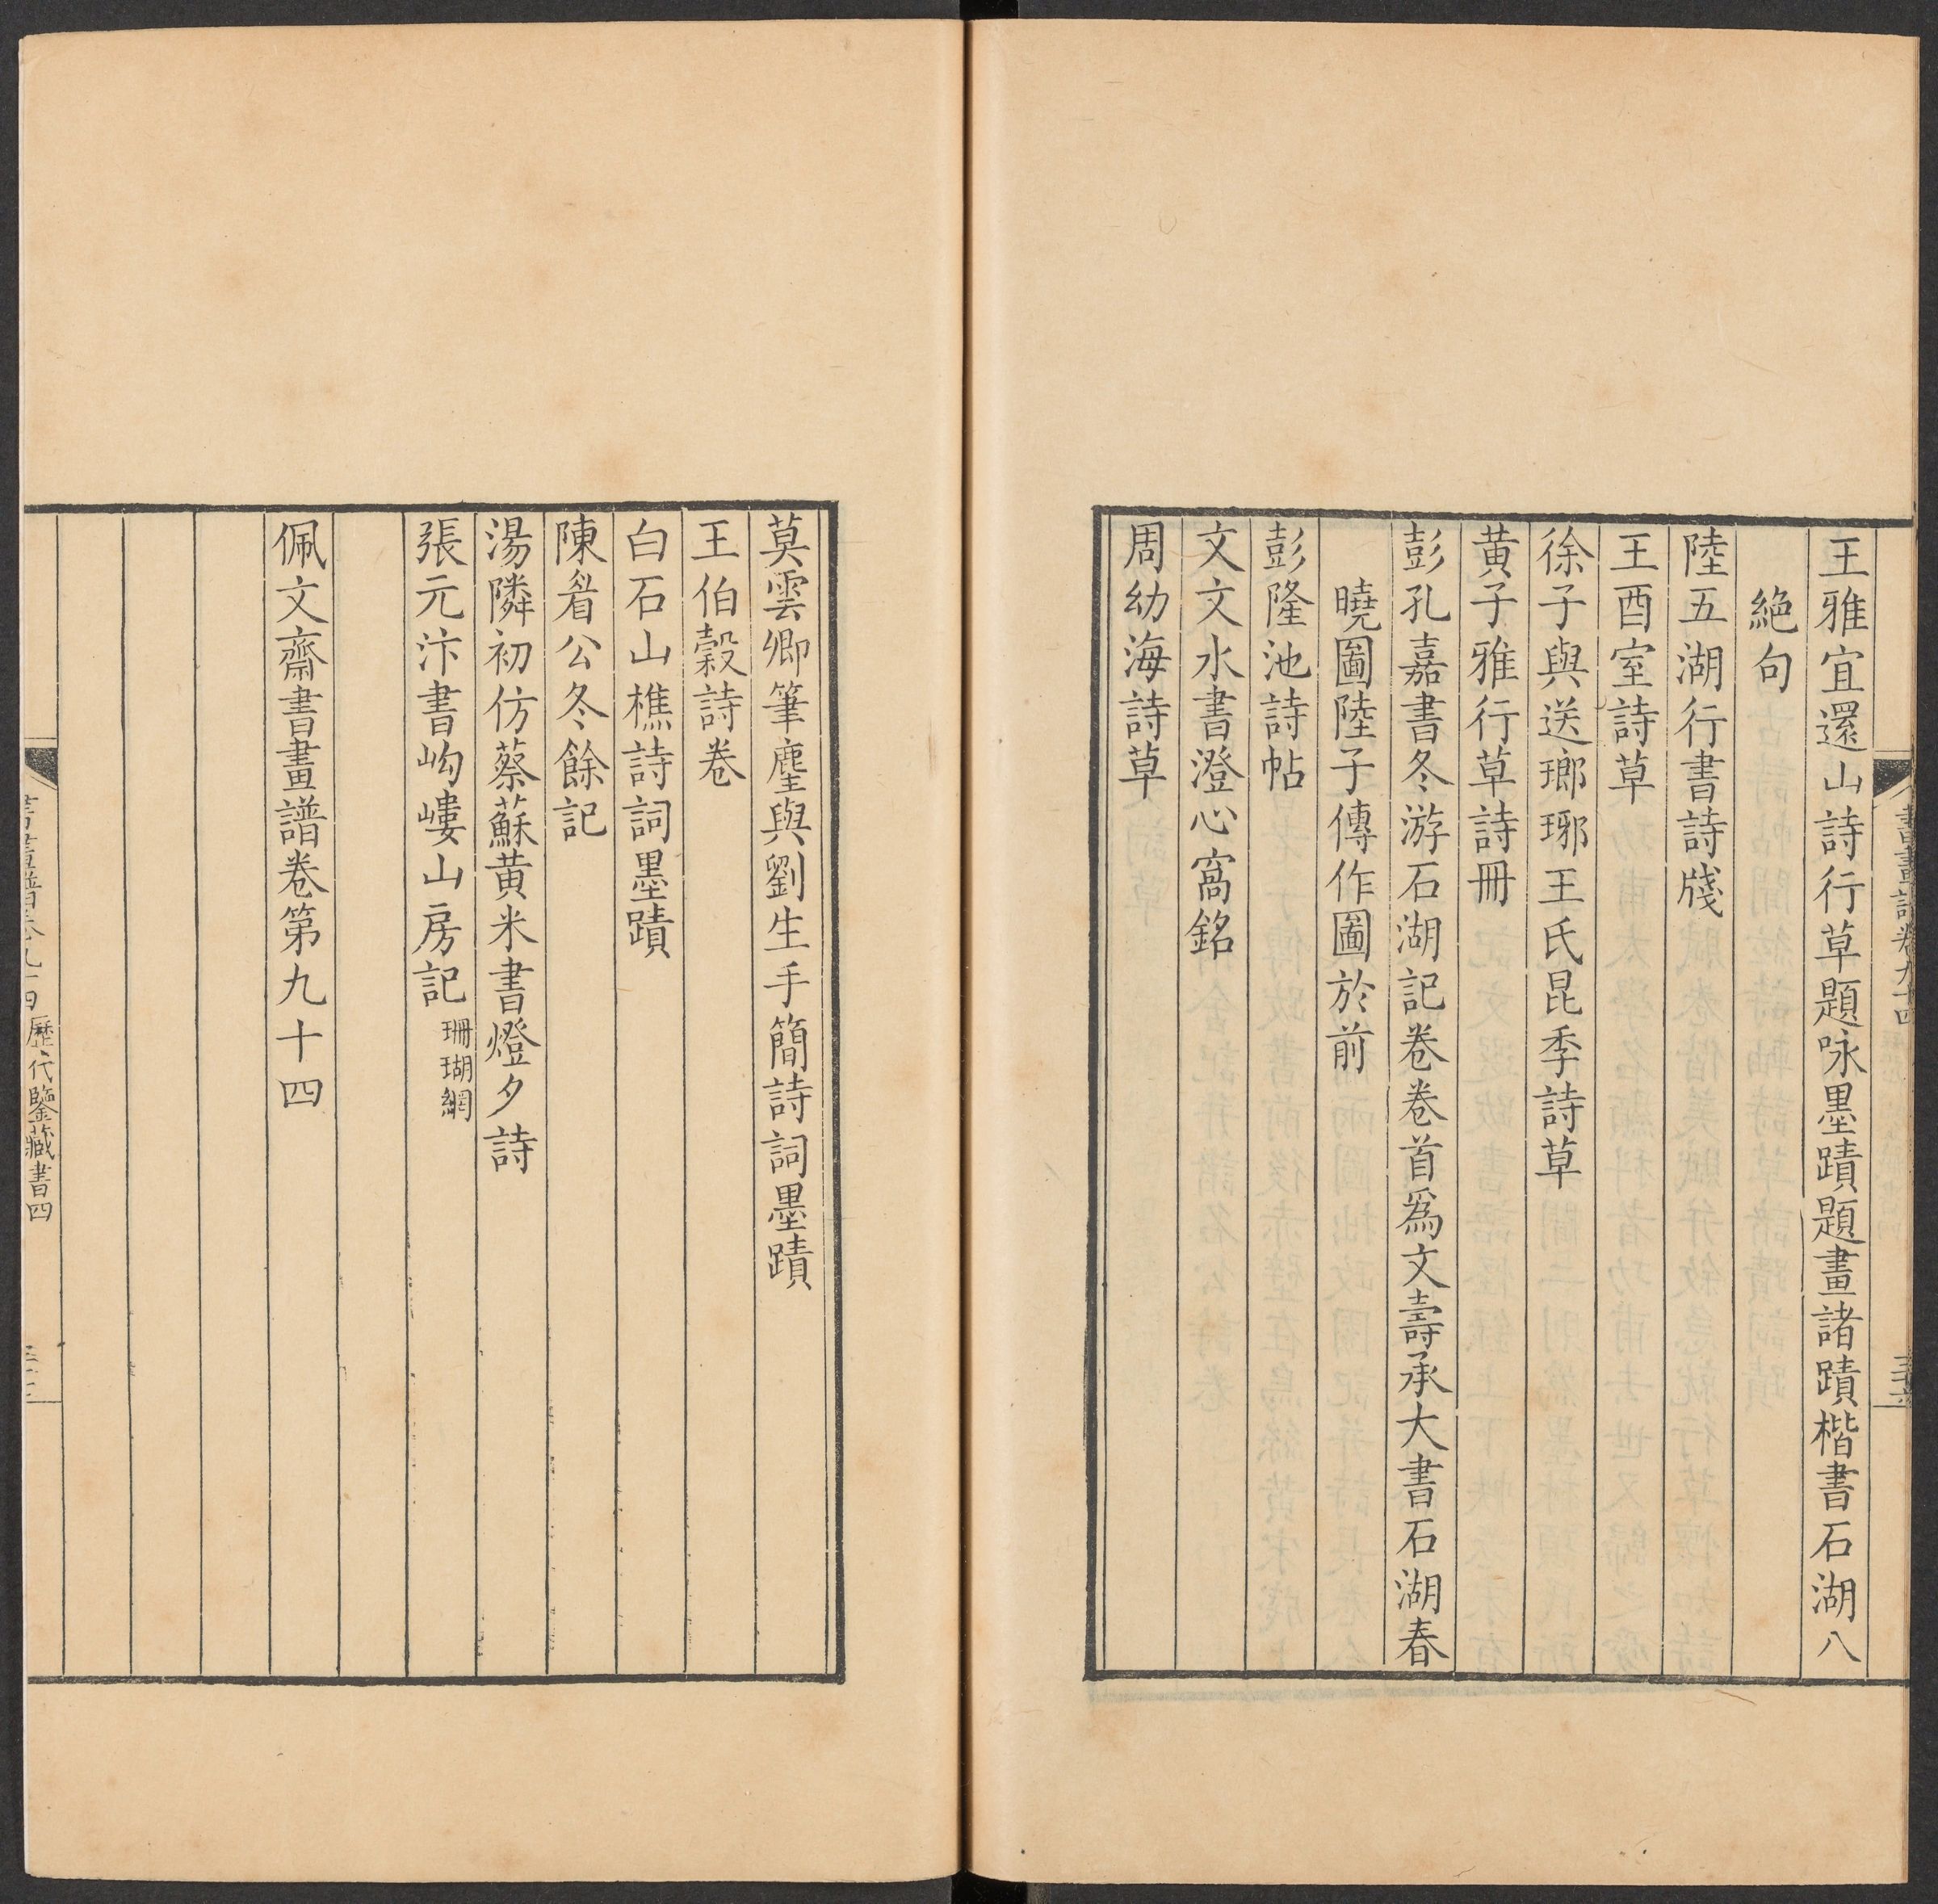 王雅宜還山詩行草題咏墨蹟題畫諸蹟楷書石湖八
絕句
陸五湖行書詩牋
王酉室詩草
徐子與送瑯琊王氏昆季詩草
黃子雅行草詩冊
彭孔嘉書冬游石湖記卷卷首爲文壽承大書石湖春
曉圖陸子傳作圖於前
彭隆池詩帖
文文水書澄心窩銘
周幼海詩草
莫雲卿筆麈與劉生手簡詩詞墨蹟
王伯穀詩卷
白石山樵詩詞墨蹟
陳眉公冬餘記
湯隣初仿蔡蘇黃米書燈夕詩
張元汴書岣嶁山房記 珊瑚網
佩文齋書畫譜卷第九十四
書畫譜卷九十四 歷代鑒藏書四